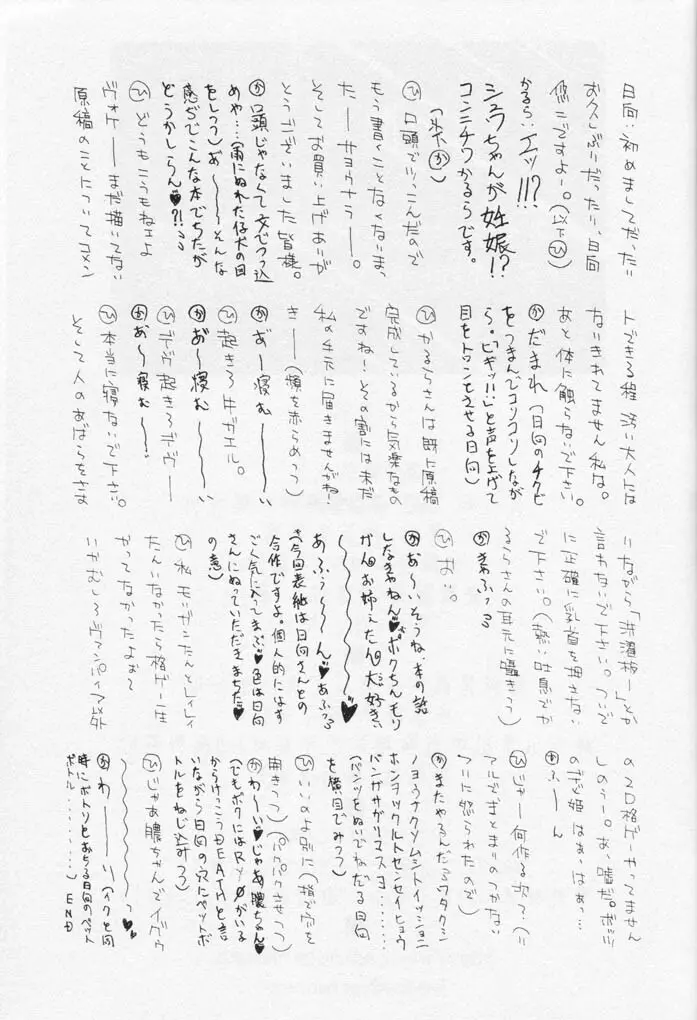 日向：初めましてだったり
お久しぶりだったり、日向
悠二ですよー。(以下ひ)
かるら：エッ!!!?
シュウちゃんが妊娠!?
コンニチワかるらです。
(以下か)
ひ 口頭でつっこんだので
もう書くことなくなっ
たーーサヨウナラーー。
そしてお買い上げありが
とうございました皆様。
か 口頭じゃなくて文でつっ込
めや…(雨にぬれた仔犬の目
をしつつ)あ〜〜〜そんな
感ぢでこんな本でちたが
どうかしらん♥?!
ひ どうもこうもねェよ
ヴォケーーまだ描いてない
原稿のことについてコメン
トできる程汚い大人には
なりきれてません私は。
あと体に触らないで下さい。
か だまれ(日向のチクビ
をつまんでコリコリしなが
ら。「ビギッ!!」と声を上げて
目をトロンとさせる日向)
ひ かるらさんは既に原稿
完成しているから気楽なもの
ですね!その割には未だ
私の手元に届きませんがね!
きーー(頬を赤らめつつ)
か あ゛ー寝む〜〜い
ひ 起きろ牛ガエル。
か あ゛〜寝む〜〜い
ひ デヴ起きろデヴーー
か あ゛〜寝む〜〜
ひ 本当に寝ないで下さい。
そして人のあばらをさす
りながら「洗濯板ー」とか
言わないで下さい。ついで
に正確に乳首を押さない
で下さい。(熱い吐息でか
るらさんの耳元に囁きつつ)
か きゃふっ
ひ おい。
か あ〜いそうね、本の話
しなきゃねん♥ボクちんモリ
ガンお姉たん大好き
〜〜〜〜♥
あふぅ〜〜ん♥あふっ
(今回表紙は日向さんとの
合作ですよ。個人的にはす
ごく気に入ってまふ♥色は日向
さんにぬっていただきまちた♥
の意)
ひ 私モリガンたんとレイレイ
たんいなかったら格ゲー一生
やってなかったよおて
いうかむしろヴァンパイア以外
の2D格ゲーやってません
しのぅー。あ、嘘だ。ポッケ
のぎ姫はぁ、はぁっ…
か ふーん
ひ じゃー何作る次て、(リ
アルでまとまりのつかない
フリに怒られたので)
か またやるんだワタクシ
ノヨウナクソムシトイッショニ
ホンヲツクルトセンセイヒョウ
バンガサガリマスヨ………
(パンツをぬいでねだる日向
を横目でみつつ)
ひ いいのよ別に(指で穴を
開きつつ)(パクパクさせつつ)
か わーい♥じゃあ朧ちゃん♥
(でもボクにはRYOがいる
からけっこうDEATHと言
いながら日向の穴にペットボ
トルをねじ込みつつ)
ひ じゃあ朧ちゃんでイグゥ
〜〜〜〜〜っ♥
か わーーーい(イクと同
時にボトリとおちる日向のペット
ボトル………) END